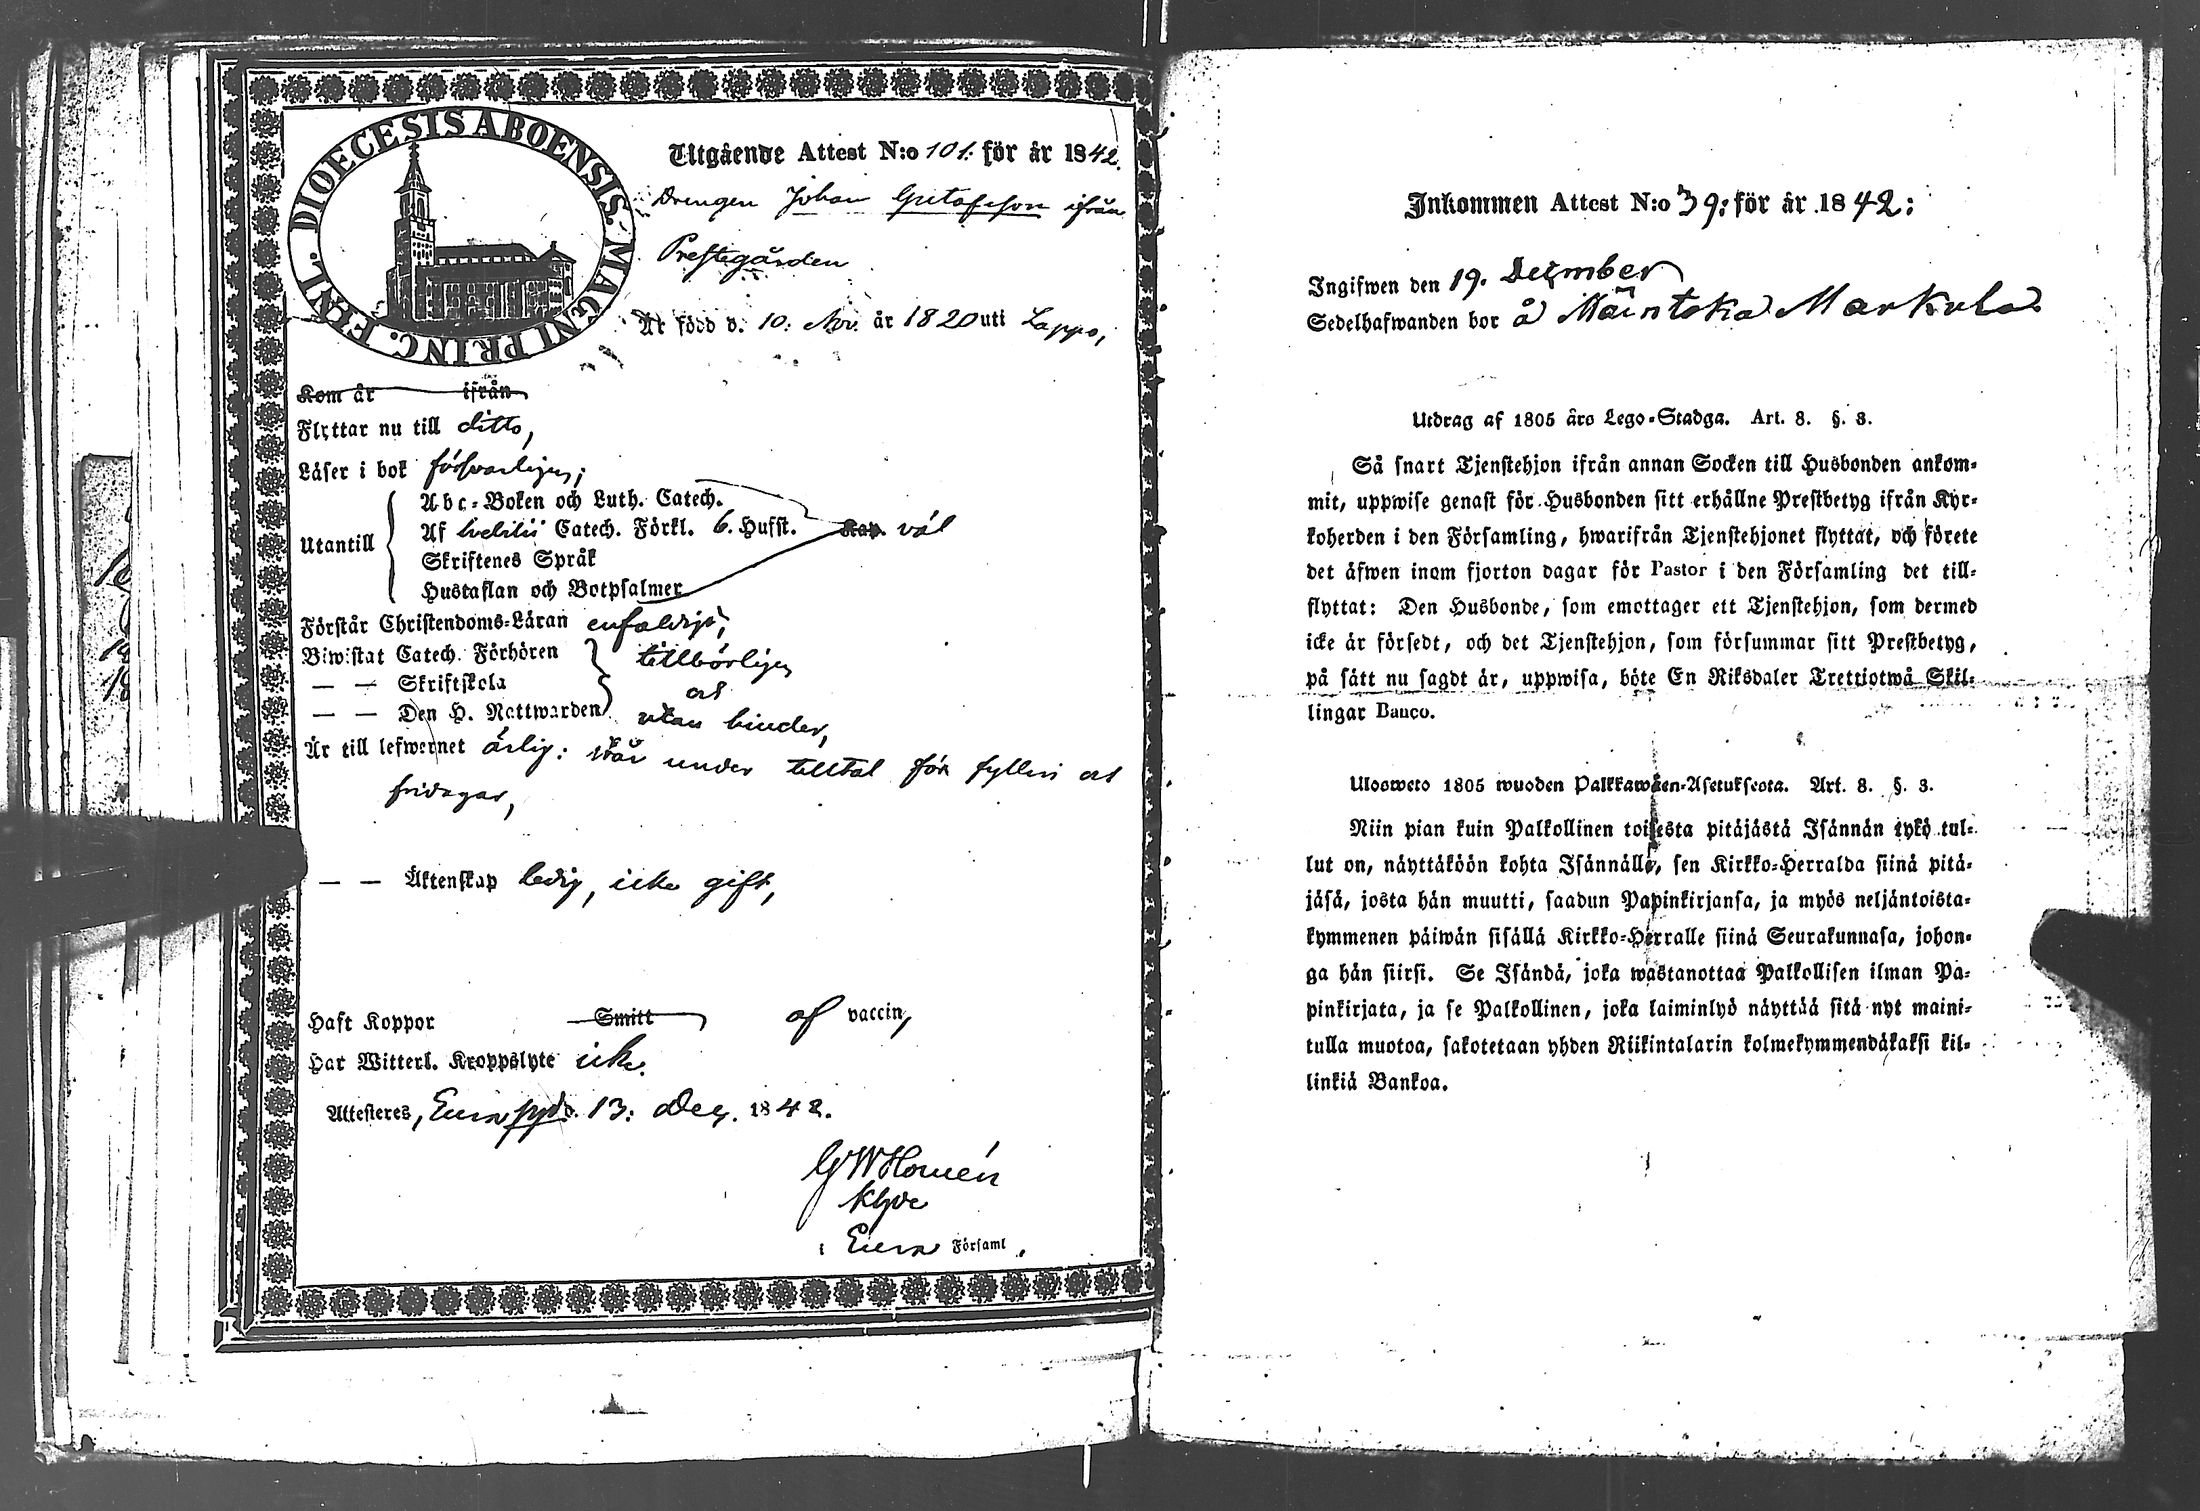 DIOECESIS ABOENSIS. MAGNI PRINC. FINL.
Utgående Attest N:o 101. för år 1842.
Drengen Johan Gustafsson ifrån
Prestegården
Är född d. 10: Nov. år 1820 uti Lappo,
Kom år ifrån
Flyttar nu till ditto,
Läser i bok försvarligen;
Abc-Boken och Luth. Catech.
Utantill Af Catech. Förkl. 6. Hufst. Kap. väl
Skriftenes Språk
Hustaflan och Botpsalmer
Förstår Christendoms-Läran enfaldigt;
Biwistat Catech. Förhören tillbörligen
— — Skriftskola och
— — Den H. Nattwarden utan hinder,
Är till lefwernet ärlig: står under tilltal för fylleri och
fridagar,
— — Äktenskap ledig, icke gift,
Haft Koppor Smitt af vaccin,
Har Witterl. Kroppslyte icke.
Attesteres, Eura pgd. 13: Dec. 1842.
GW Homén
Khde
i Eura Församl.
Inkommen Attest N:o 39: för år 1842:
Ingifwen den 19. December
Sedelhafwanden bor å Mäntska Markula
Utdrag af 1805 års Lego-Stadga. Art. 8. §. 3.
Så snart Tjenstehjon ifrån annan Socken till Husbonden ankom-
mit, uppwise genast för Husbonden sitt erhållne Prestbetyg ifrån Kyr-
koherden i den Församling, hwarifrån Tjenstehjonet flyttat, och förete
det äfwen inom fjorton dagar för Pastor i den Församling det till-
flyttat: Den Husbonde, som emottager ett Tjenstehjon, som dermed
icke är försedt, och det Tjenstehjon, som försummar sitt Prestbetyg,
på sätt nu sagdt är, uppwisa, böte En Riksdaler Trettiotwå Skil-
lingar Banco.
Ulosweto 1805 wuoden Palkkawäen-Asetuksesta. Art. 8. §. 3.
Niin pian kuin Palkollinen toisesta pitäjästä Isännän tykö tul-
lut on, näyttäköön kohta Isännälle, sen Kirkko-Herralda siinä pitä-
jäsä, josta hän muutti, saadun Papinkirjansa, ja myös neljäntoista-
kymmenen päiwän sisällä Kirkko-Herralle siinä Seurakunnasa, johon-
ga hän siirsi. Se Isändä, joka wastanottaa Palkollisen ilman Pa-
pinkirjata, ja se Palkollinen, joka laiminlyö näyttää sitä nyt maini-
tulla muotoa, sakotetaan yhden Riikintalarin kolmekymmendäkaksi kil-
linkiä Bankoa.